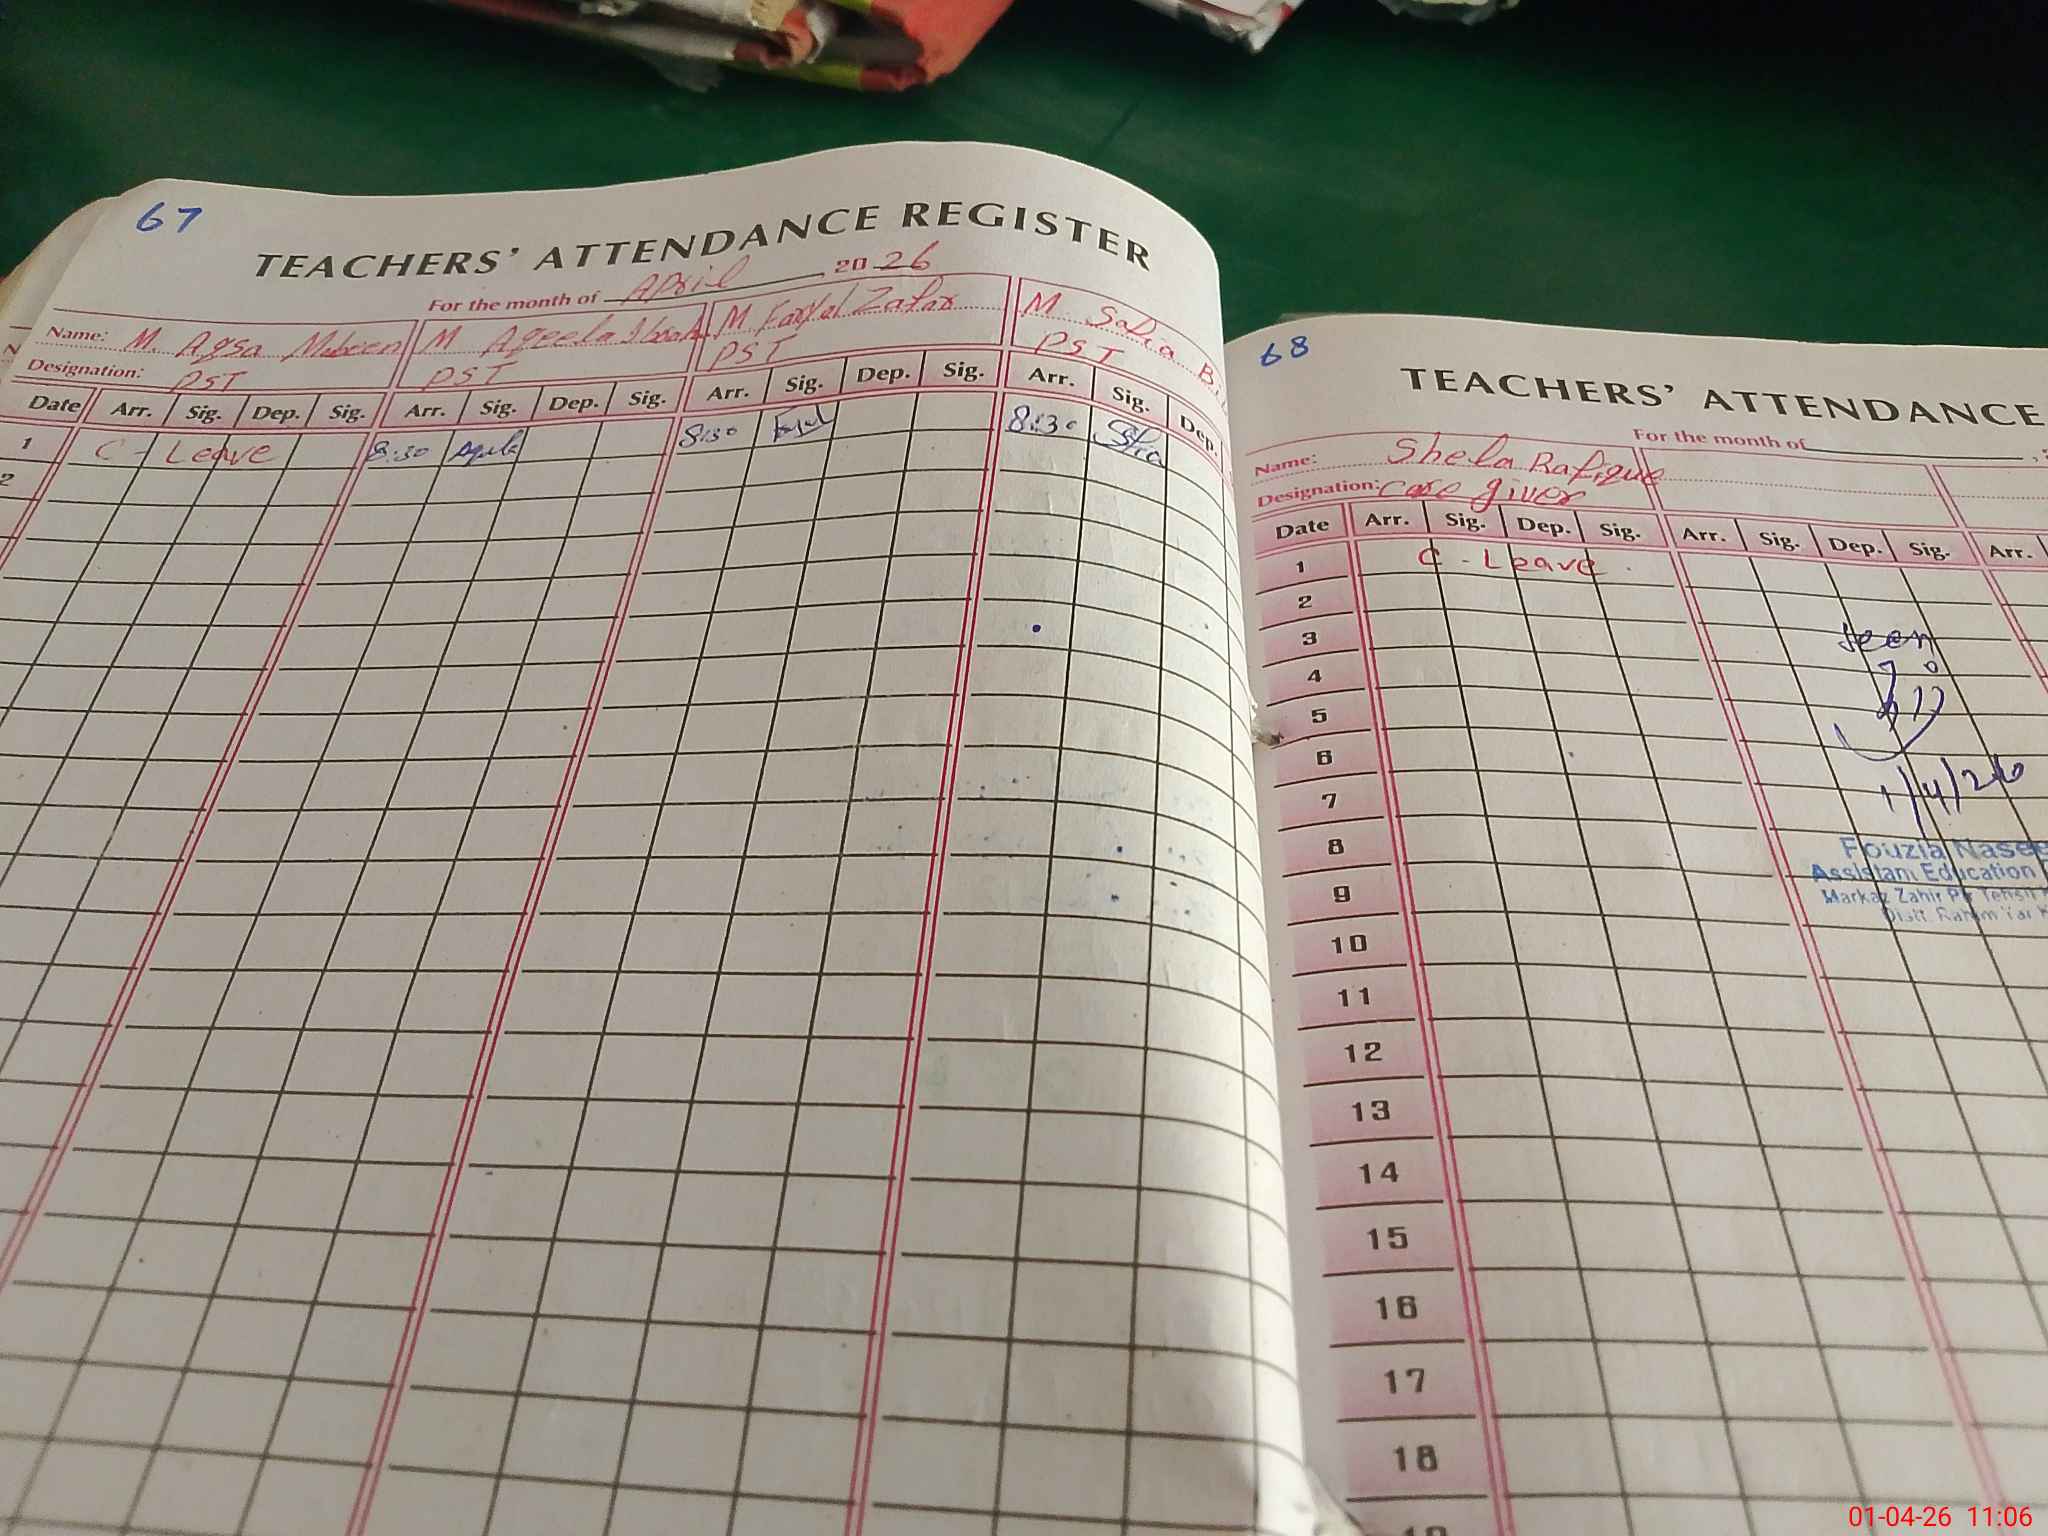 67
TEACHERS' ATTENDANCE REGISTER
For the month of April 2026
Name: M. Aqsa Mubeen M Aqeela M M. Sadia
Designation: PST PST PST PST
Date Arr. Sig. Dep. Sig. Arr. Sig. Dep. Sig. Arr. Sig. Dep. Sig. Arr. Sig. Dep.
1 C - Leave 8:30 8:30 8:30
2
68
TEACHERS' ATTENDANCE
For the month of
Name: Shela Rafique
Designation: care giver
Date Arr. Sig. Dep. Sig. Arr. Sig. Dep. Sig. Arr.
1 C - Leave
2
3 Seen
4
5
6
7 1/4/26
8 Fouzia
Assistant Education
9 Markaz Zahir Pir Tehsil
Distt. Rahim Yar
10
11
12
13
14
15
16
17
18
19
01-04-26 11:06